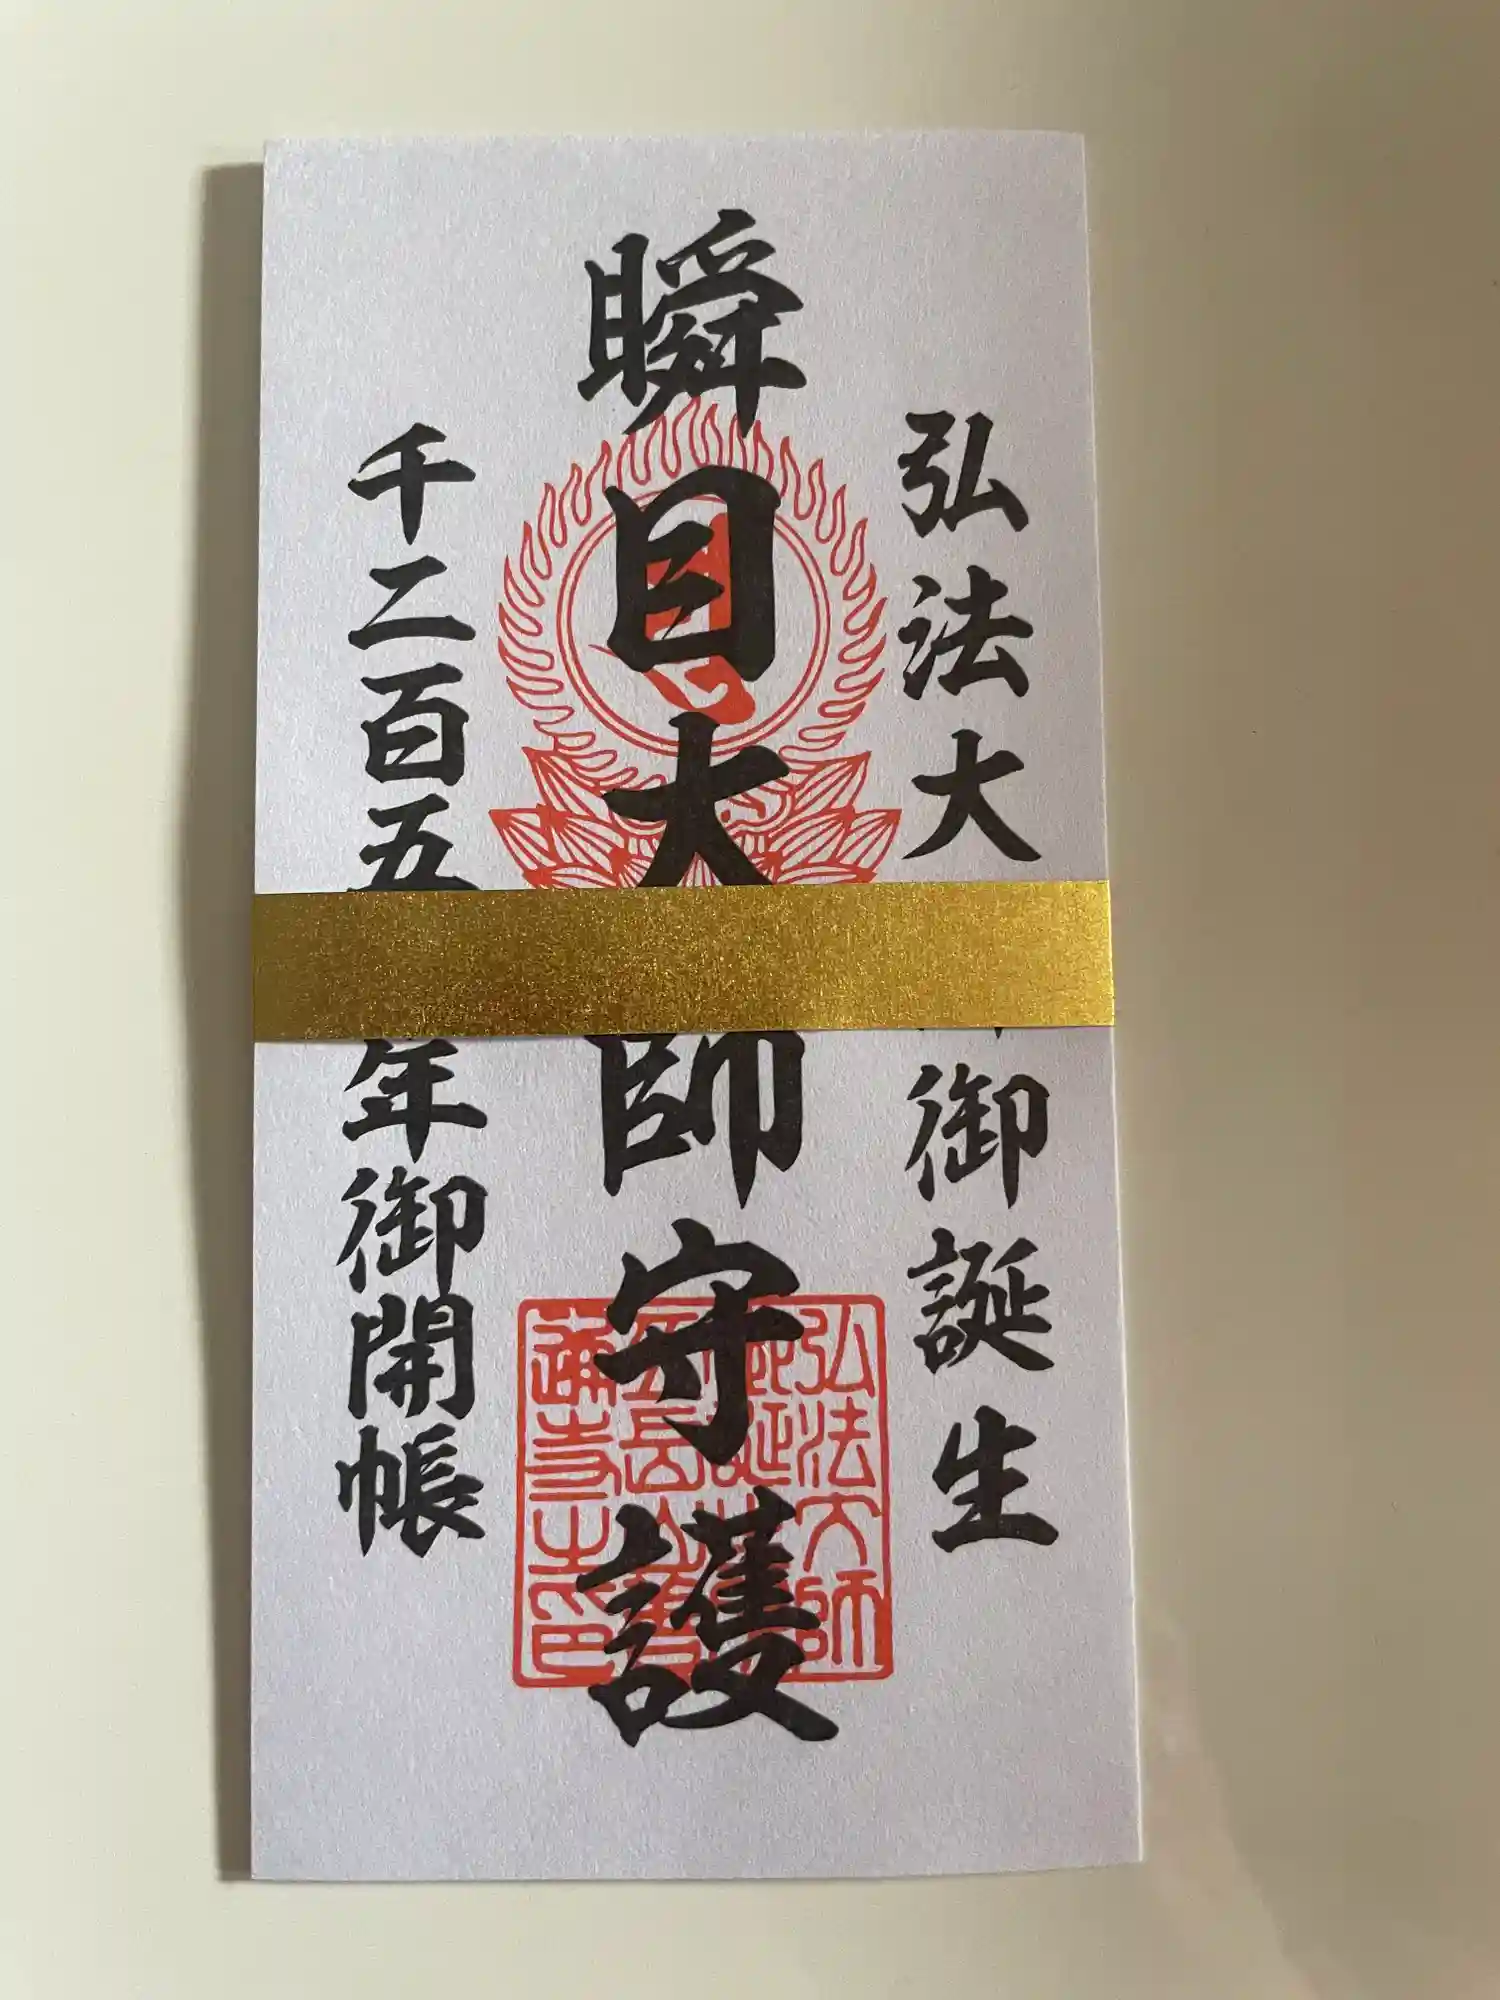 弘法大師御誕生
瞬目大師守護
千二百五年御開帳
弘法大師
善通寺主印